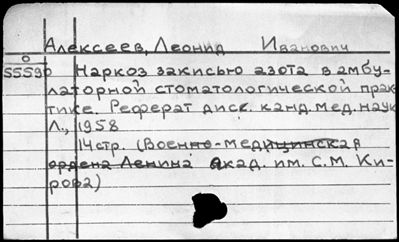 Алексеев, Леонид Иванович
О
55590 Наркоз закисью азота в амбу-
латорной стоматологической прак
тике. Реферат дисс. канд. мед. наук
Л., 1958
14 стр. (Военно-медицинская
ордена Ленина акад. им. С.М. Ки-
рова)